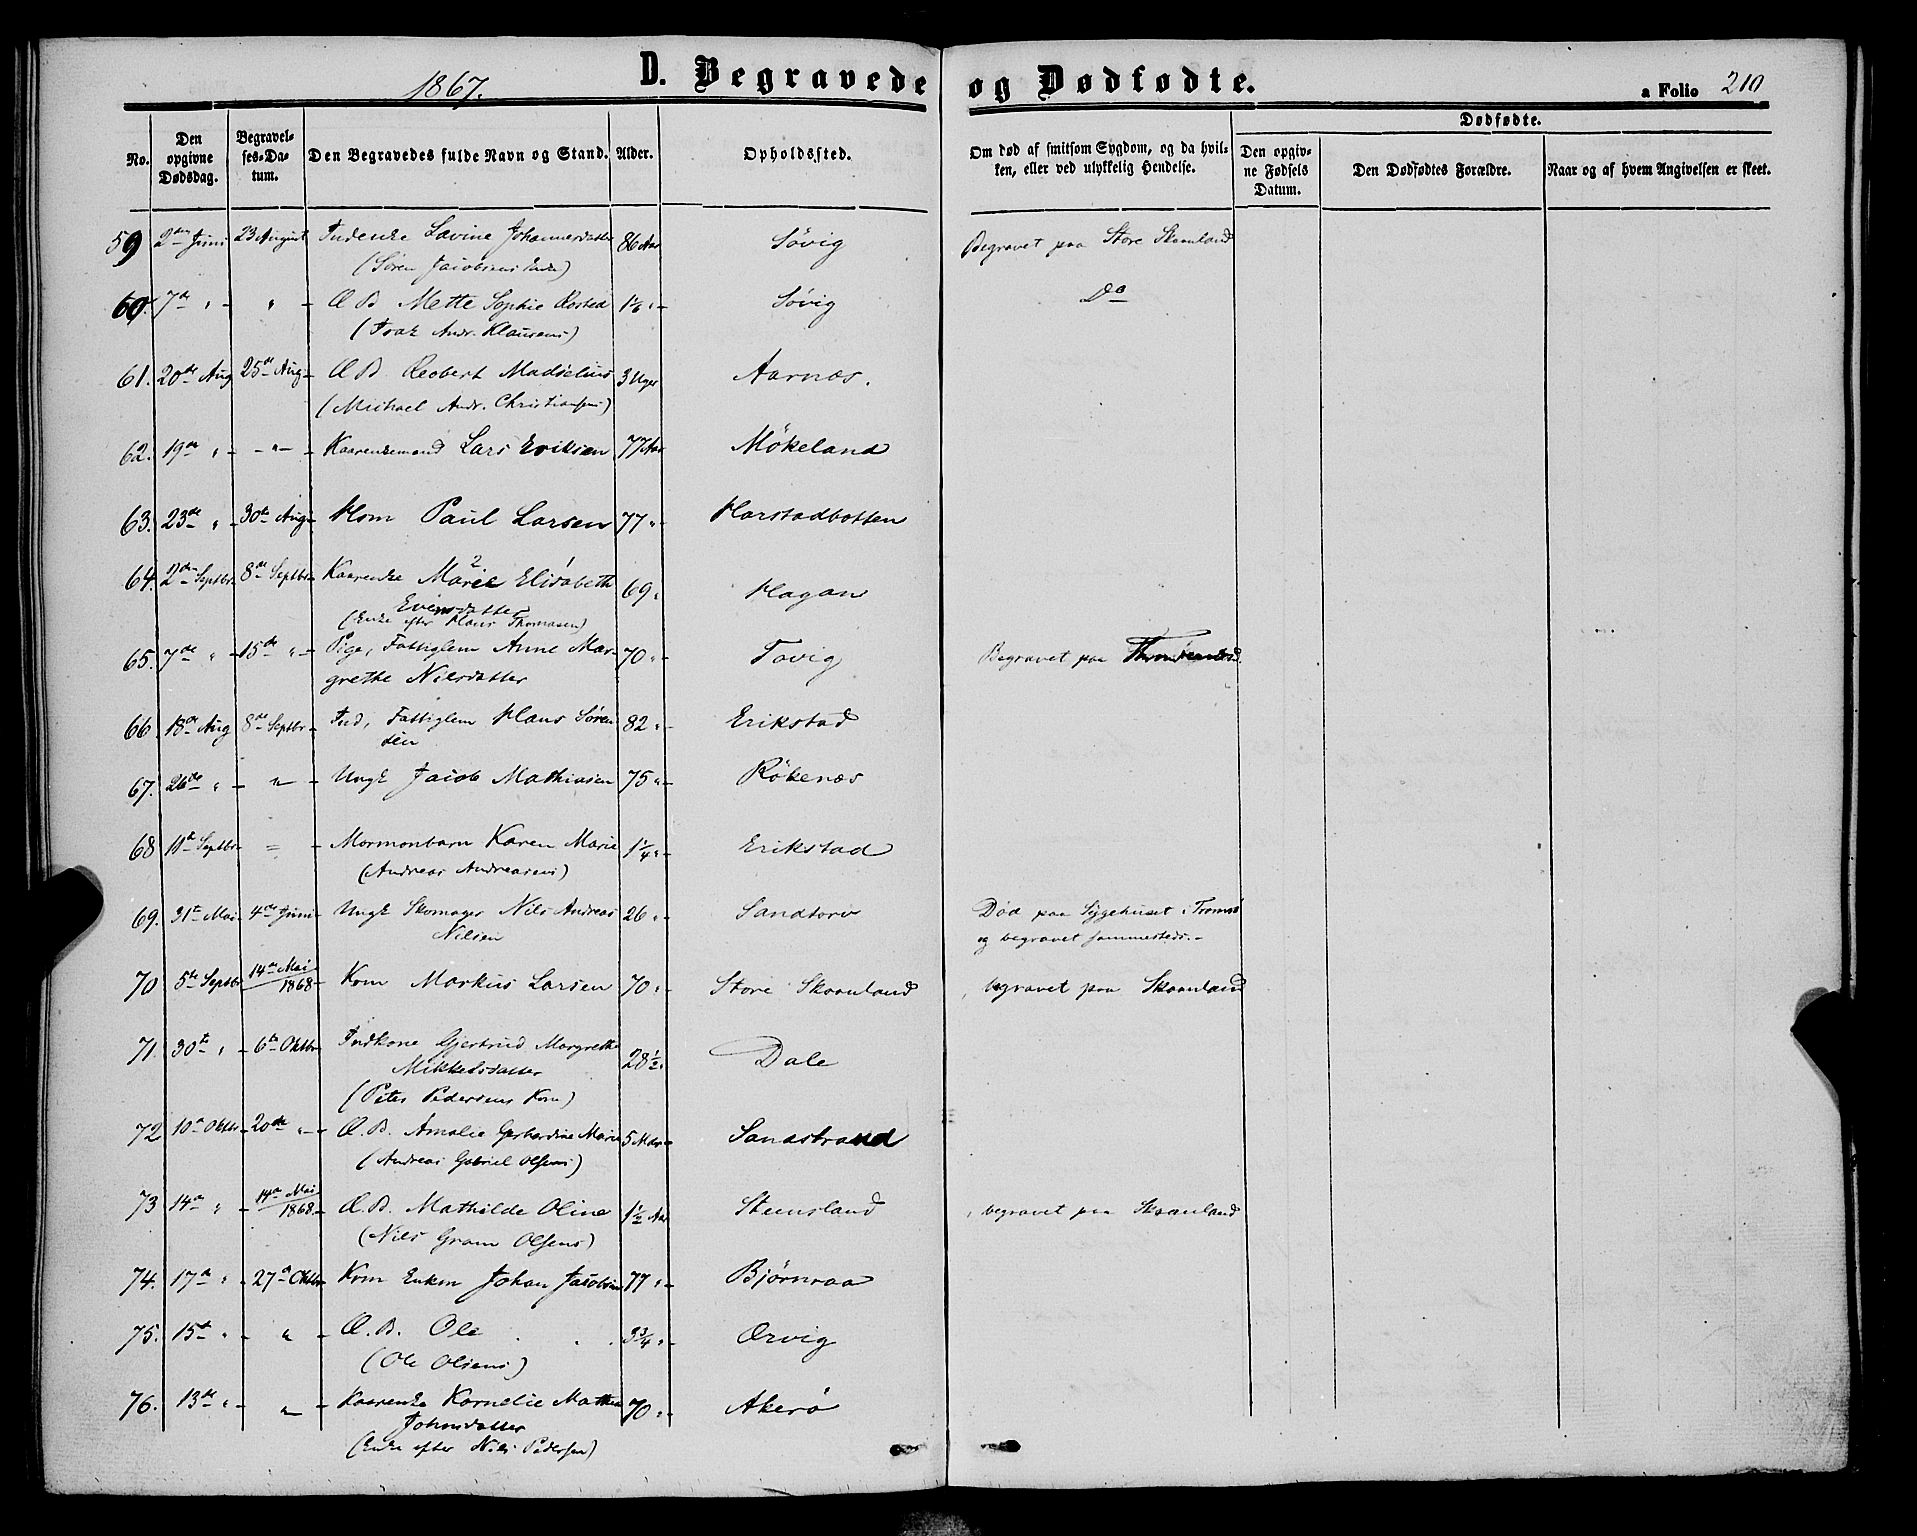 1867. D. Begravede og Dødfødte. a Folio 210
No. Den opgivne Dødsdag. Begravelses-Datum. Den Begravedes fulde Navn og Stand. Alder. Opholdssted. Om død af smitsom Sygdom, og da hvilken, eller ved ulykkelig Hendelse. Dødfødte. Den opgivne Fødsels Datum. Den Dødfødtes Forældre. Naar og af hvem Angivelsen er skeet.
59 2den Juni 23 August Indenke Lavine Johannesdatter 86 Aar Søvig Begravet paa Store Skaanland
(Søren Jacobsens Enke)
60. 7de " - " - Æ B Mette Sophie Rosted " - Søvig Do
( Andr. Klausens)
61. 20de Aug 25de Aug - Æ B Reobert Madselius 3 Uger Aarnæs.
(Michael Andr. Christiansens)
62. 19de " - - " - - Kaarenkemand Lars Eriksen 77 Aar Møkeland
63. 23de " - 30te Aug - Kom Paul Larsen 77 " - Harstadbotten
64. 2den Septbr 8de Septbr - Kaarenke Marie Elisabeth 69 " Hagan
Evensdatter
(Enke efter Hans Thomasen)
65. 7de " - 15de " - Pige, Fattiglem Anne Mar- 70 " - Tovig Begravet paa
grethe Nilsdatter
66 18de Aug 8de Septbr - Ind, Fattiglem Hans Søren 82 " - Erikstad
sen
67. 26de " - " - Ungk Jacob Mathiasen 75 " - Røkenæs
68 11te Septbr - = - Mormonbarn Karen Marie 1 1/4 " - Erikstad
(Andreas Andreasens)
69. 31te Mai 4de Juni - Ungk Skomager Nils Andreas 26 " - Sandtorv Død paa Sygehuset i Tromsø
Nilsen og begravet sammesteds. -
70 5te Septbr 14de Mai 1868 - Kom Markus Larsen 70 " - Store Skaanland , begravet paa Skaanland
71. 30te " - 6te Oktbr Indkone Gjertrud Margrethe 28 1/2 " Dale
Mikkelsdatter
(Peter Pedersens Kone)
72 10de Oktbr - 20de " - Æ. B. Amalie Gerhardine Marie 5 Mdr - Sandstrand
(Andreas Gabriel Olsens)
73 14de " - 14de Mai 1868. - Æ. B. Mathilde Oline 1 1/2 Aar Steensland , begravet paa Skaanland
(Nils Gram Olsens)
74. 17de " - 27de Oktbr Kom Enkm Johan Jacobsen 77 " - Bjørnraa
75. 15te " - " - Æ. B. Ole 3 3/4 " - Ervig
(Ole Olsens)
76. 13de " - " - Kaarenke Kornelie Mathea 70 " - Akerø
Johnsdatter
(Enke efter Nils Pedersen)